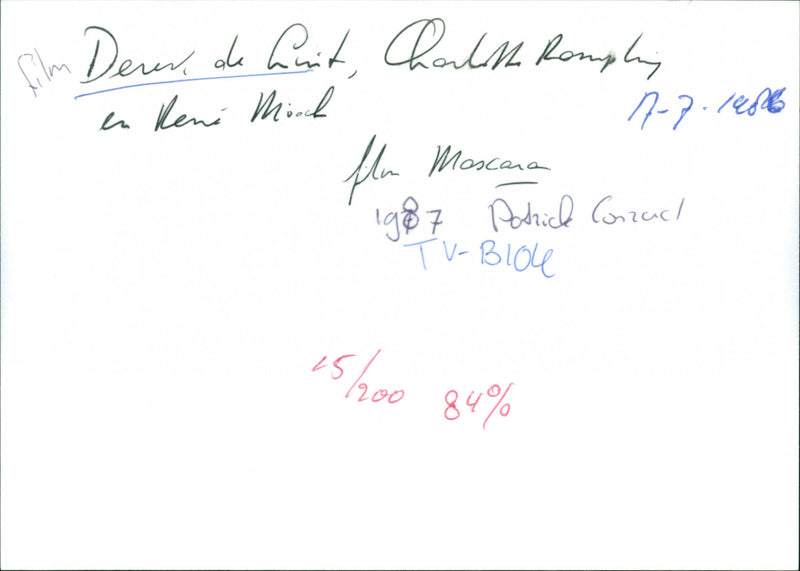 film Derek de Lint, Charlotte Rampling
en René Mooch
17-7-1986
film Mascara
1987 Patrick Conrad
TV-BLOK
15/200 84%